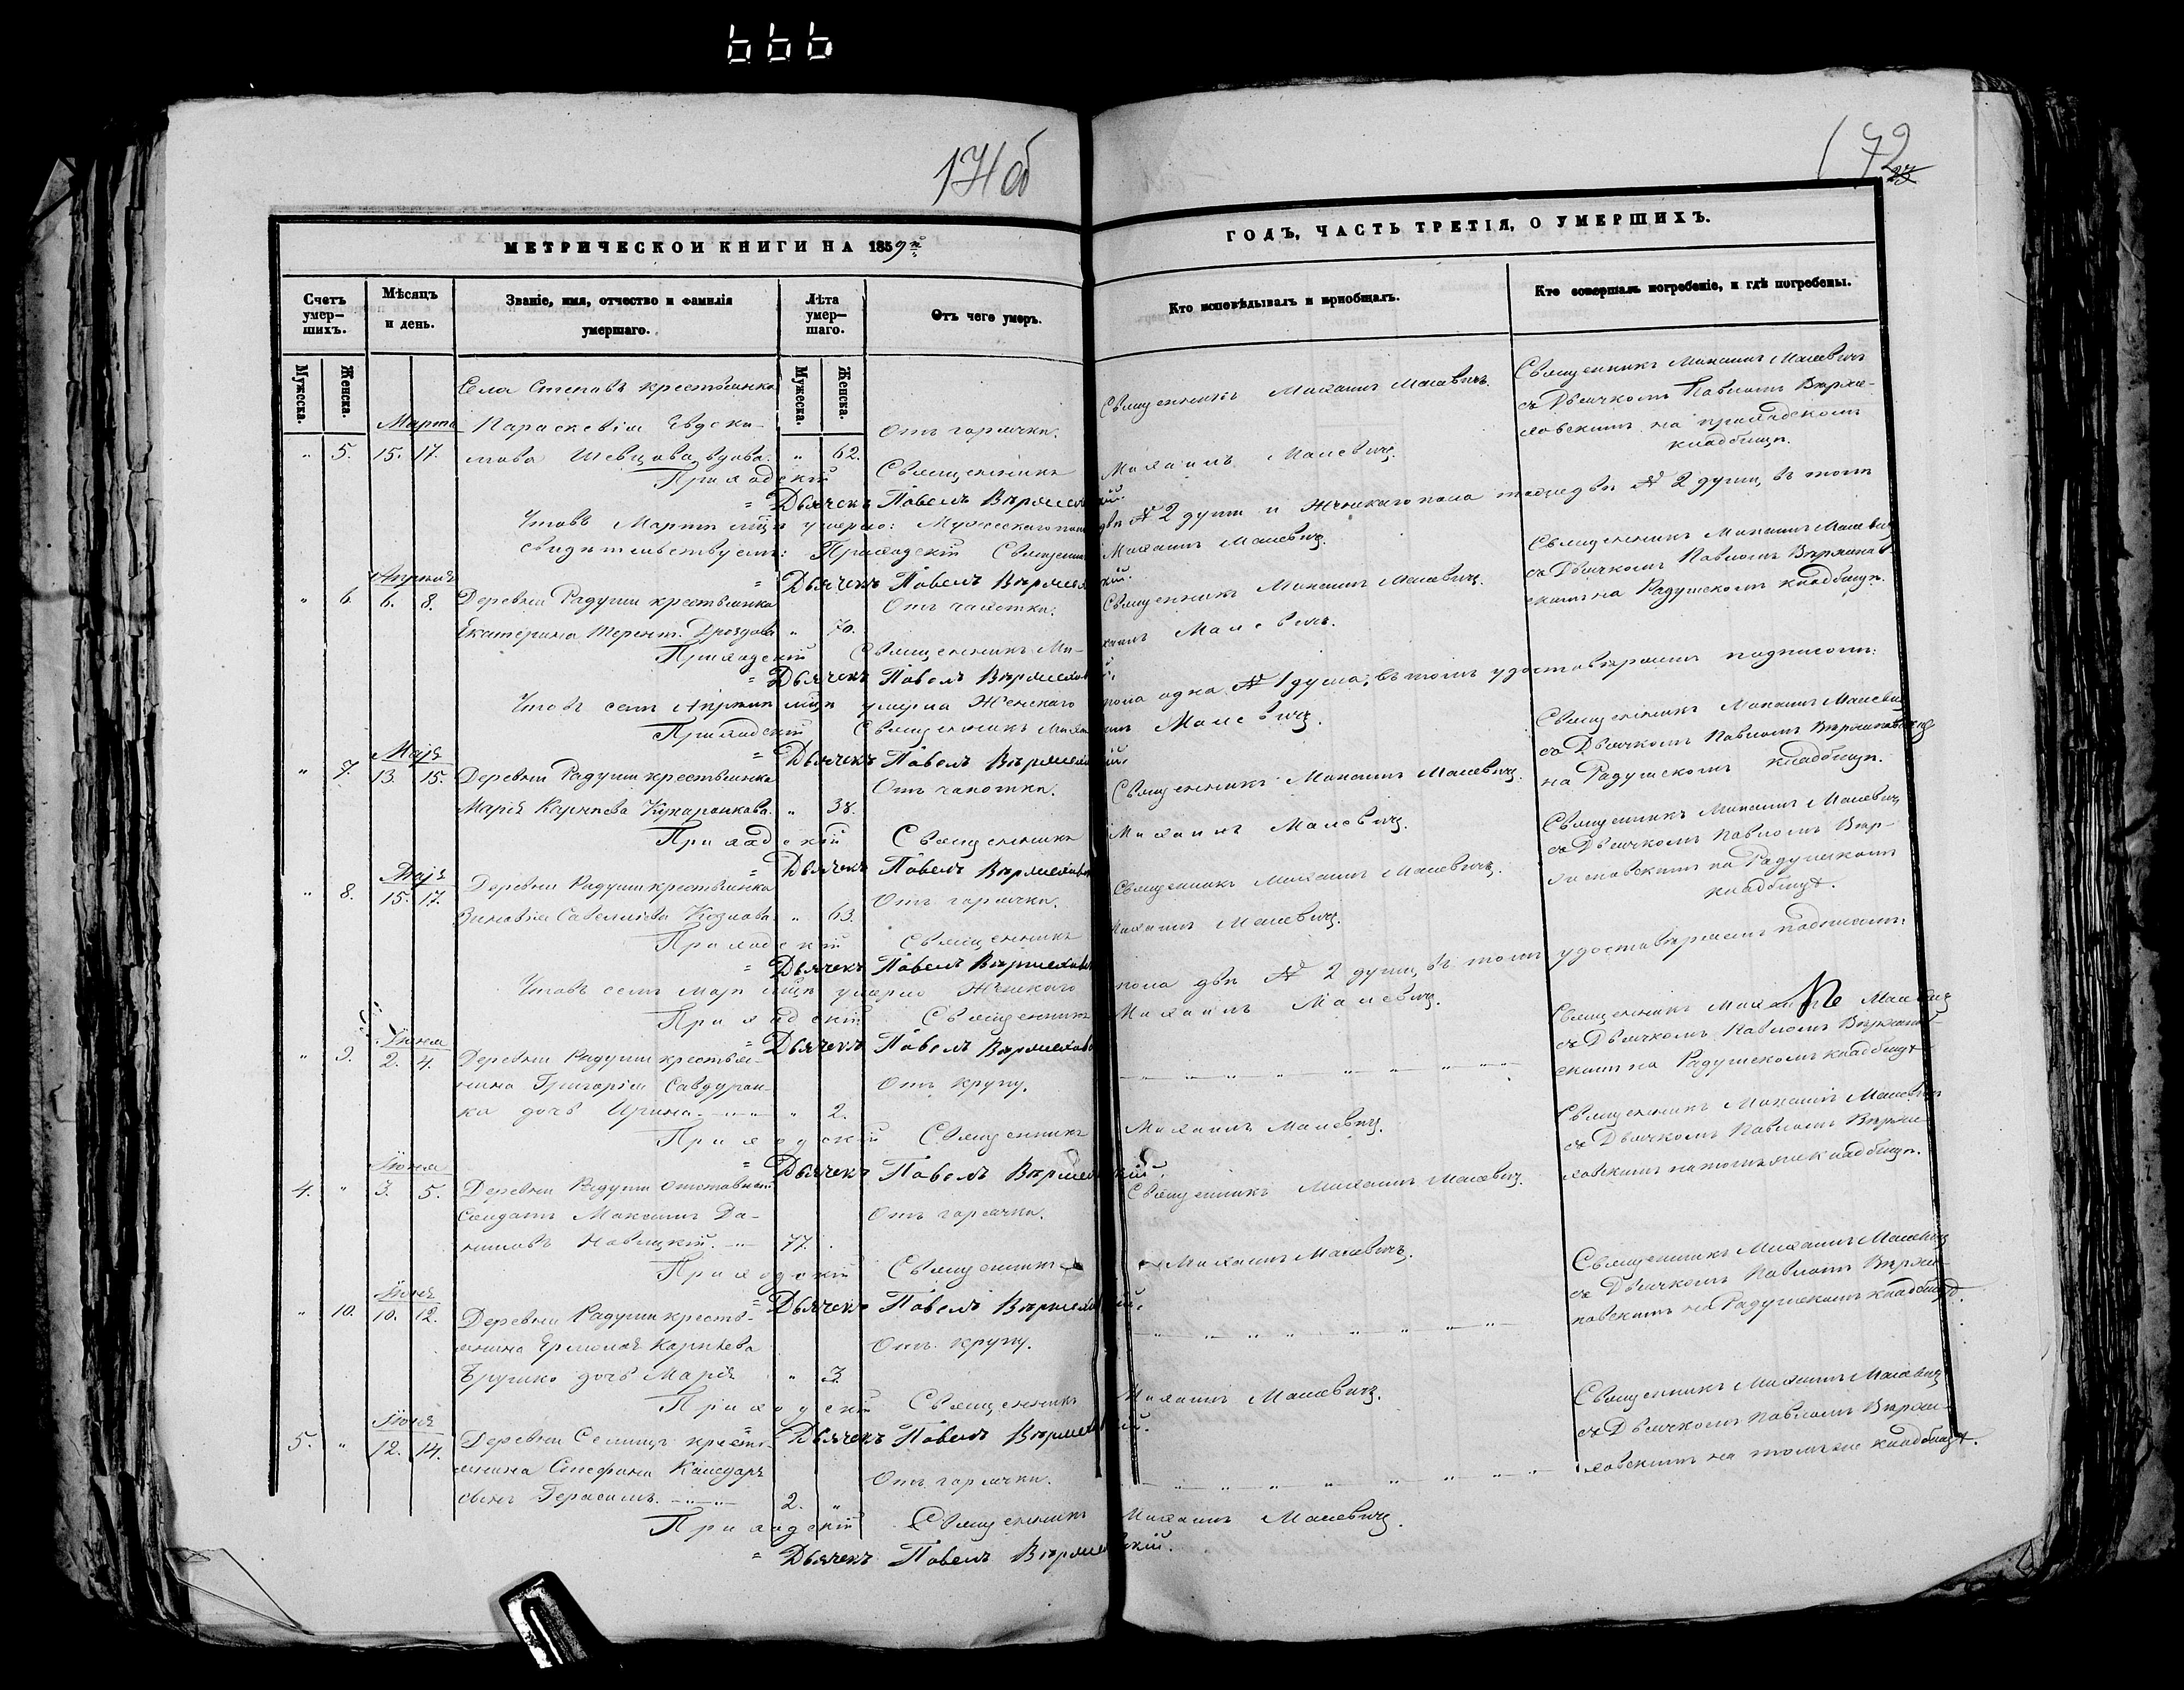 666
174об
172
МЕТРИЧЕСКОЙ КНИГИ НА 1859й
ГОДЪ, ЧАСТЬ ТРЕТІЯ, О УМЕРШИХЪ.
Счетъ умер-шихъ.
Мѣсяцъ и день.
Званіе, имя, отчество и фамилія умершаго.
Лѣта умер-шаго.
Отъ чего умеръ.
Кто исповѣдывалъ и пріобщалъ.
Кто совершалъ погребеніе, и гдѣ погребены.
Мужеска.
Женска.
Мужеска.
Женска.
Села Степовъ крестьянка
Марта Параскевія Евдоки-
" 5. 15. 17. мова Шевцова, вдова. " 62.
Отъ горячки.
Священникъ Михаилъ Малевичъ.
Священникъ Михаилъ Малевичъ
съ Дьячкомъ Павломъ Вѣрже-
ховскимъ на приходскомъ
кладбищѣ.
Приходскій Священникъ Михаилъ Малевичъ.
" Дьячекъ Павелъ Вѣржеховскій.
Что въ Мартѣ м͠цѣ умерло: Мужескаго пола двѣ № 2 души и Женскаго пола тоже двѣ № 2 души, въ томъ
свидѣтельствуемъ: Приходскій Священникъ Михаилъ Малевичъ.
" Дьячекъ Павелъ Вѣржеховскій.
Апрѣля
" 6. 6. 8. Деревни Радуги крестьянка
Екатерина Терент. Дроздова " 70.
Отъ чахотки.
Священникъ Михаилъ Малевичъ.
Священникъ Михаилъ Малевичъ
съ Дьячкомъ Павломъ Вѣржехов-
скимъ на Радужскомъ кладбищѣ.
Приходскій Священникъ Михаилъ Малевичъ.
" Дьячекъ Павелъ Вѣржеховскій.
Что въ семъ Апрѣлѣ м͠цѣ умерла Женскаго пола одна № 1 душа, въ томъ удостовѣряемъ подписомъ:
Приходскій Священникъ Михаилъ Малевичъ.
" Дьячекъ Павелъ Вѣржеховскій.
Маја
" 7. 13. 15. Деревни Радуги крестьянка
Марія Карпѣева " 38.
Отъ чахотки.
Священникъ Михаилъ Малевичъ.
Священникъ Михаилъ Малевичъ
съ Дьячкомъ Павломъ Вѣржеховскимъ
на Радужскомъ кладбищѣ.
Приходскій Священникъ Михаилъ Малевичъ.
" Дьячекъ Павелъ Вѣржеховскій
Маја
" 8. 15. 17. Деревни Радуги крестьянка
Зиновія Савельева Козлова " 63.
Отъ горячки.
Священникъ Михаилъ Малевичъ.
Священникъ Михаилъ Малевичъ
съ Дьячкомъ Павломъ Вѣр-
жеховскимъ на Радужскомъ
кладбищѣ.
Приходскій Священникъ Михаилъ Малевичъ.
" Дьячекъ Павелъ Вѣржеховскій
Что въ семъ Маѣ м͠цѣ умерло Женскаго пола двѣ № 2 души, въ томъ удостовѣряемъ подписомъ:
Приходскій Священникъ Михаилъ Малевичъ.
" Дьячекъ Павелъ Вѣржеховскій
Іюня
" 9. 2. 4. Деревни Радуги крестья-
нина Григорія
ка дочь Ирина. " 2.
Отъ крупу.
Священникъ Михаилъ Малевичъ
съ Дьячкомъ Павломъ Вѣржехов-
скимъ на Радужскомъ кладбищѣ
Приходскій Священникъ Михаилъ Малевичъ.
" Дьячекъ Павелъ Вѣржеховскій.
Іюня
4. " 3. 5. Деревни Радуги отставный
Солдатъ Максимъ Да-
ниловъ Новицкій. 77.
Отъ горячки.
Священникъ Михаилъ Малевичъ.
Священникъ Михаилъ Малевичъ
съ Дьячкомъ Павломъ Вѣрже-
ховскимъ на томъ же кладбищѣ.
Приходскій Священникъ Михаилъ Малевичъ.
" Дьячекъ Павелъ Вѣржеховскій.
Іюня
" 10. 10. 12. Деревни Радуги кресть-
янина Ермолая Карпѣева
дочь Марія " 3.
Отъ крупу.
Священникъ Михаилъ Малевичъ
съ Дьячкомъ Павломъ Вѣрже-
ховскимъ на Радужскомъ кладбищѣ.
Приходскій Священникъ Михаилъ Малевичъ.
" Дьячекъ Павелъ Вѣржеховскій.
Іюня
5. " 12. 14. Деревни Селищъ кресть-
янина Стефана
сынъ Герасимъ. 2. "
Отъ горячки.
Священникъ Михаилъ Малевичъ
съ Дьячкомъ Павломъ Вѣрже-
ховскимъ на томъ же кладбищѣ.
Приходскій Священникъ Михаилъ Малевичъ.
" Дьячекъ Павелъ Вѣржеховскій.